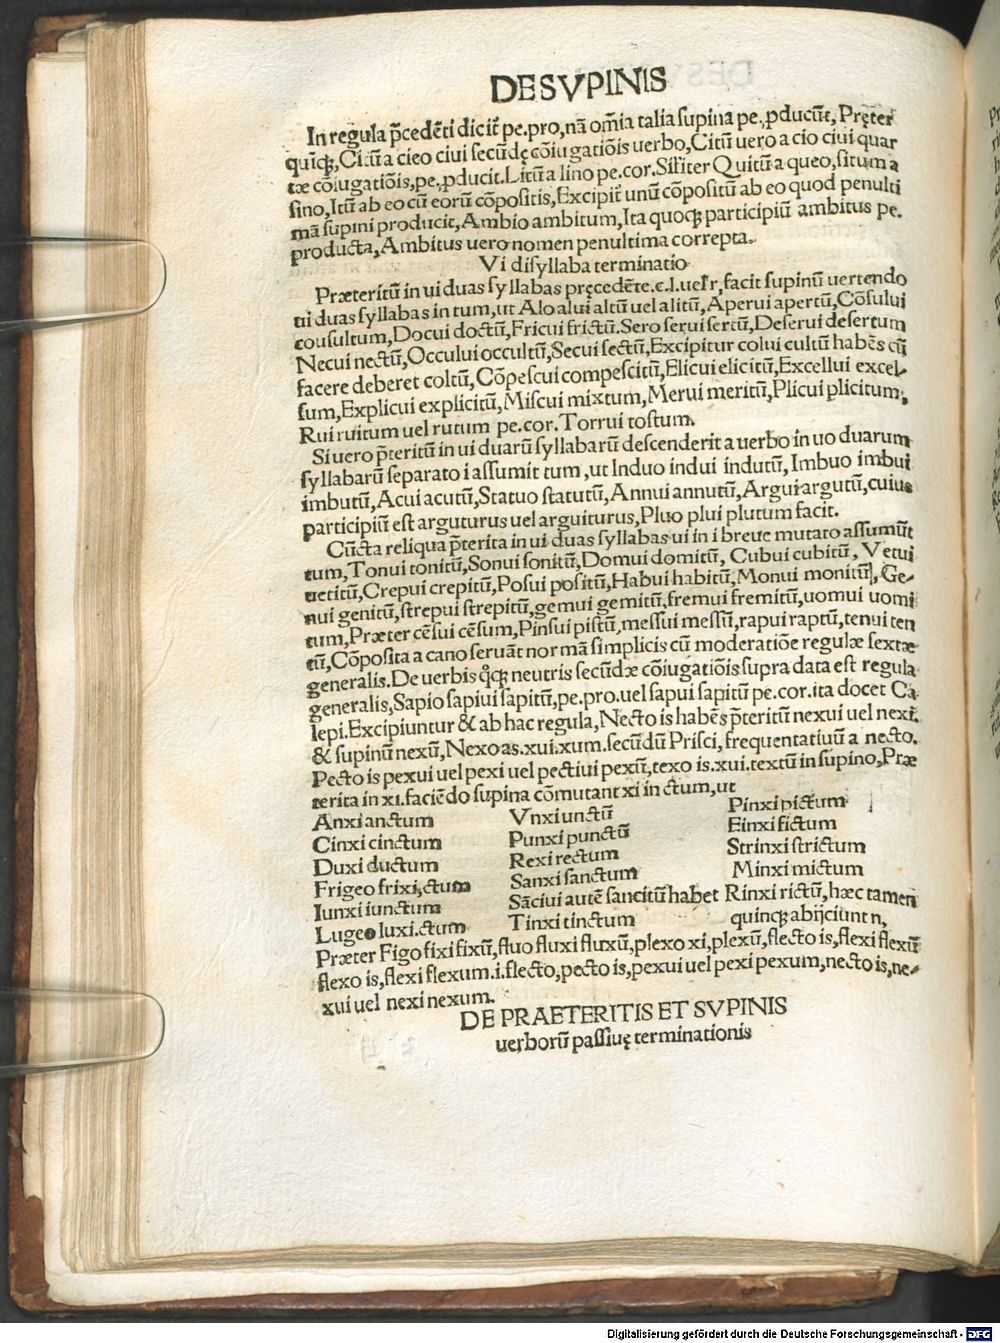 DE SVPINIS
In regula p̄cedēti dicit̄ pe.pro,nā om̄ia talia supina pe.,pducūt, Pręter
quīq;,Citū a cieo ciui secūdę cōiugatiōis uerbo,Citū uero a cio ciui quar
tæ cōiugatiōis,pe.,pducit.Litū a lino pe.cor.Sił'iter Quitū a queo,situm a
sino,Itū ab eo cū eorū cōpositis,Excipit̄ unū cōpositū ab eo quod penulti
mā supini producit,Ambio ambitum,Ita quoq; participiū ambitus pe.
producta,Ambitus uero nomen penultima correpta.
Vi disyllaba terminatio
Præteritū in ui duas syllabas pręcedēte.c.l.uel r,facit supinū uertendo
ui duas syllabas in tum,ut Alo alui altū uel alitū,Aperui apertū,Cōsului
cousultum,Docui doctū,Fricui frictū.Sero serui sertū,Deserui desertum
Necui nectū,Occului occultū,Secui sectū,Excipitur colui cultū habēs cū
facere deberet coltū,Cōpescui compescitū,Elicui elicitū,Excellui excel-
sum,Explicui explicitū,Miscui mixtum,Merui meritū,Plicui plicitum,
Rui ruitum uel rutum pe.cor.Torrui tostum.
Si uero p̄teritū in ui duarū syllabarū descenderit a uerbo in uo duarum
syllabarū separato i assumit tum,ut Induo indui indutū,Imbuo imbui
imbutū,Acui acutū,Statuo statutū,Annui annutū,Argui argutū,cuius
participiū est arguturus uel arguiturus,Pluo plui plutum facit.
Cūcta reliqua p̄terita in ui duas syllabas ui in i breue mutato assumūt
tum,Tonui tonitū,Sonui sonitū,Domui domitū, Cubui cubitū, Vetui
uetitū,Crepui crepitū,Posui positū,Habui habitū,Monui monitū,Ge-
nui genitū,strepui strepitū,gemui gemitū,fremui fremitū,uomui uomi
tum,Præter cēsui cēsum,Pinsui pistū,messui messū,rapui raptū,tenui ten
tū,Cōposita a cano seruāt normā simplicis cū moderatiōe regulæ sextæ
generalis.De uerbis q̊cq; neutris secūdæ cōiugatiōis supra data est regula
generalis,Sapio sapiui sapitū,pe.pro.uel sapui sapitū pe.cor.ita docet Ca
lepi.Excipiuntur & ab hac regula,Necto is habēs p̄teritū nexui uel nexi.
& supinū nexū,Nexo as.xui.xum.secūdū Prisci,frequentatiuū a necto.
Pecto is pexui uel pexi uel pectiui pexū,texo is.xui.textū in supino,Præ
terita in xi.faciēdo supina cōmutant xi in ctum,ut
Anxi anctum Vnxi unctū Pinxi pictum
Cinxi cinctum Punxi punctū Finxi fictum
Duxi ductum Rexi rectum Strinxi strictum
Frigeo frixi,ctum Sanxi sanctum Minxi mictum
Iunxi iunctum Sāciui autē sancitū habet Rinxi rictū,hæc tamen
Lugeo luxi.ctum Tinxi tinctum quinq; abijciunt n,
Præter Figo fixi fixū,fluo fluxi fluxū,plexo xi,plexū,flecto is,flexi flexū
flexo is,flexi flexum.i.flecto,pecto is,pexui uel pexi pexum,necto is,ne-
xui uel nexi nexum.
DE PRAETERITIS ET SVPINIS
uerborū passiuę terminationis
Digitalisierung gefördert durch die Deutsche Forschungsgemeinschaft - DFG